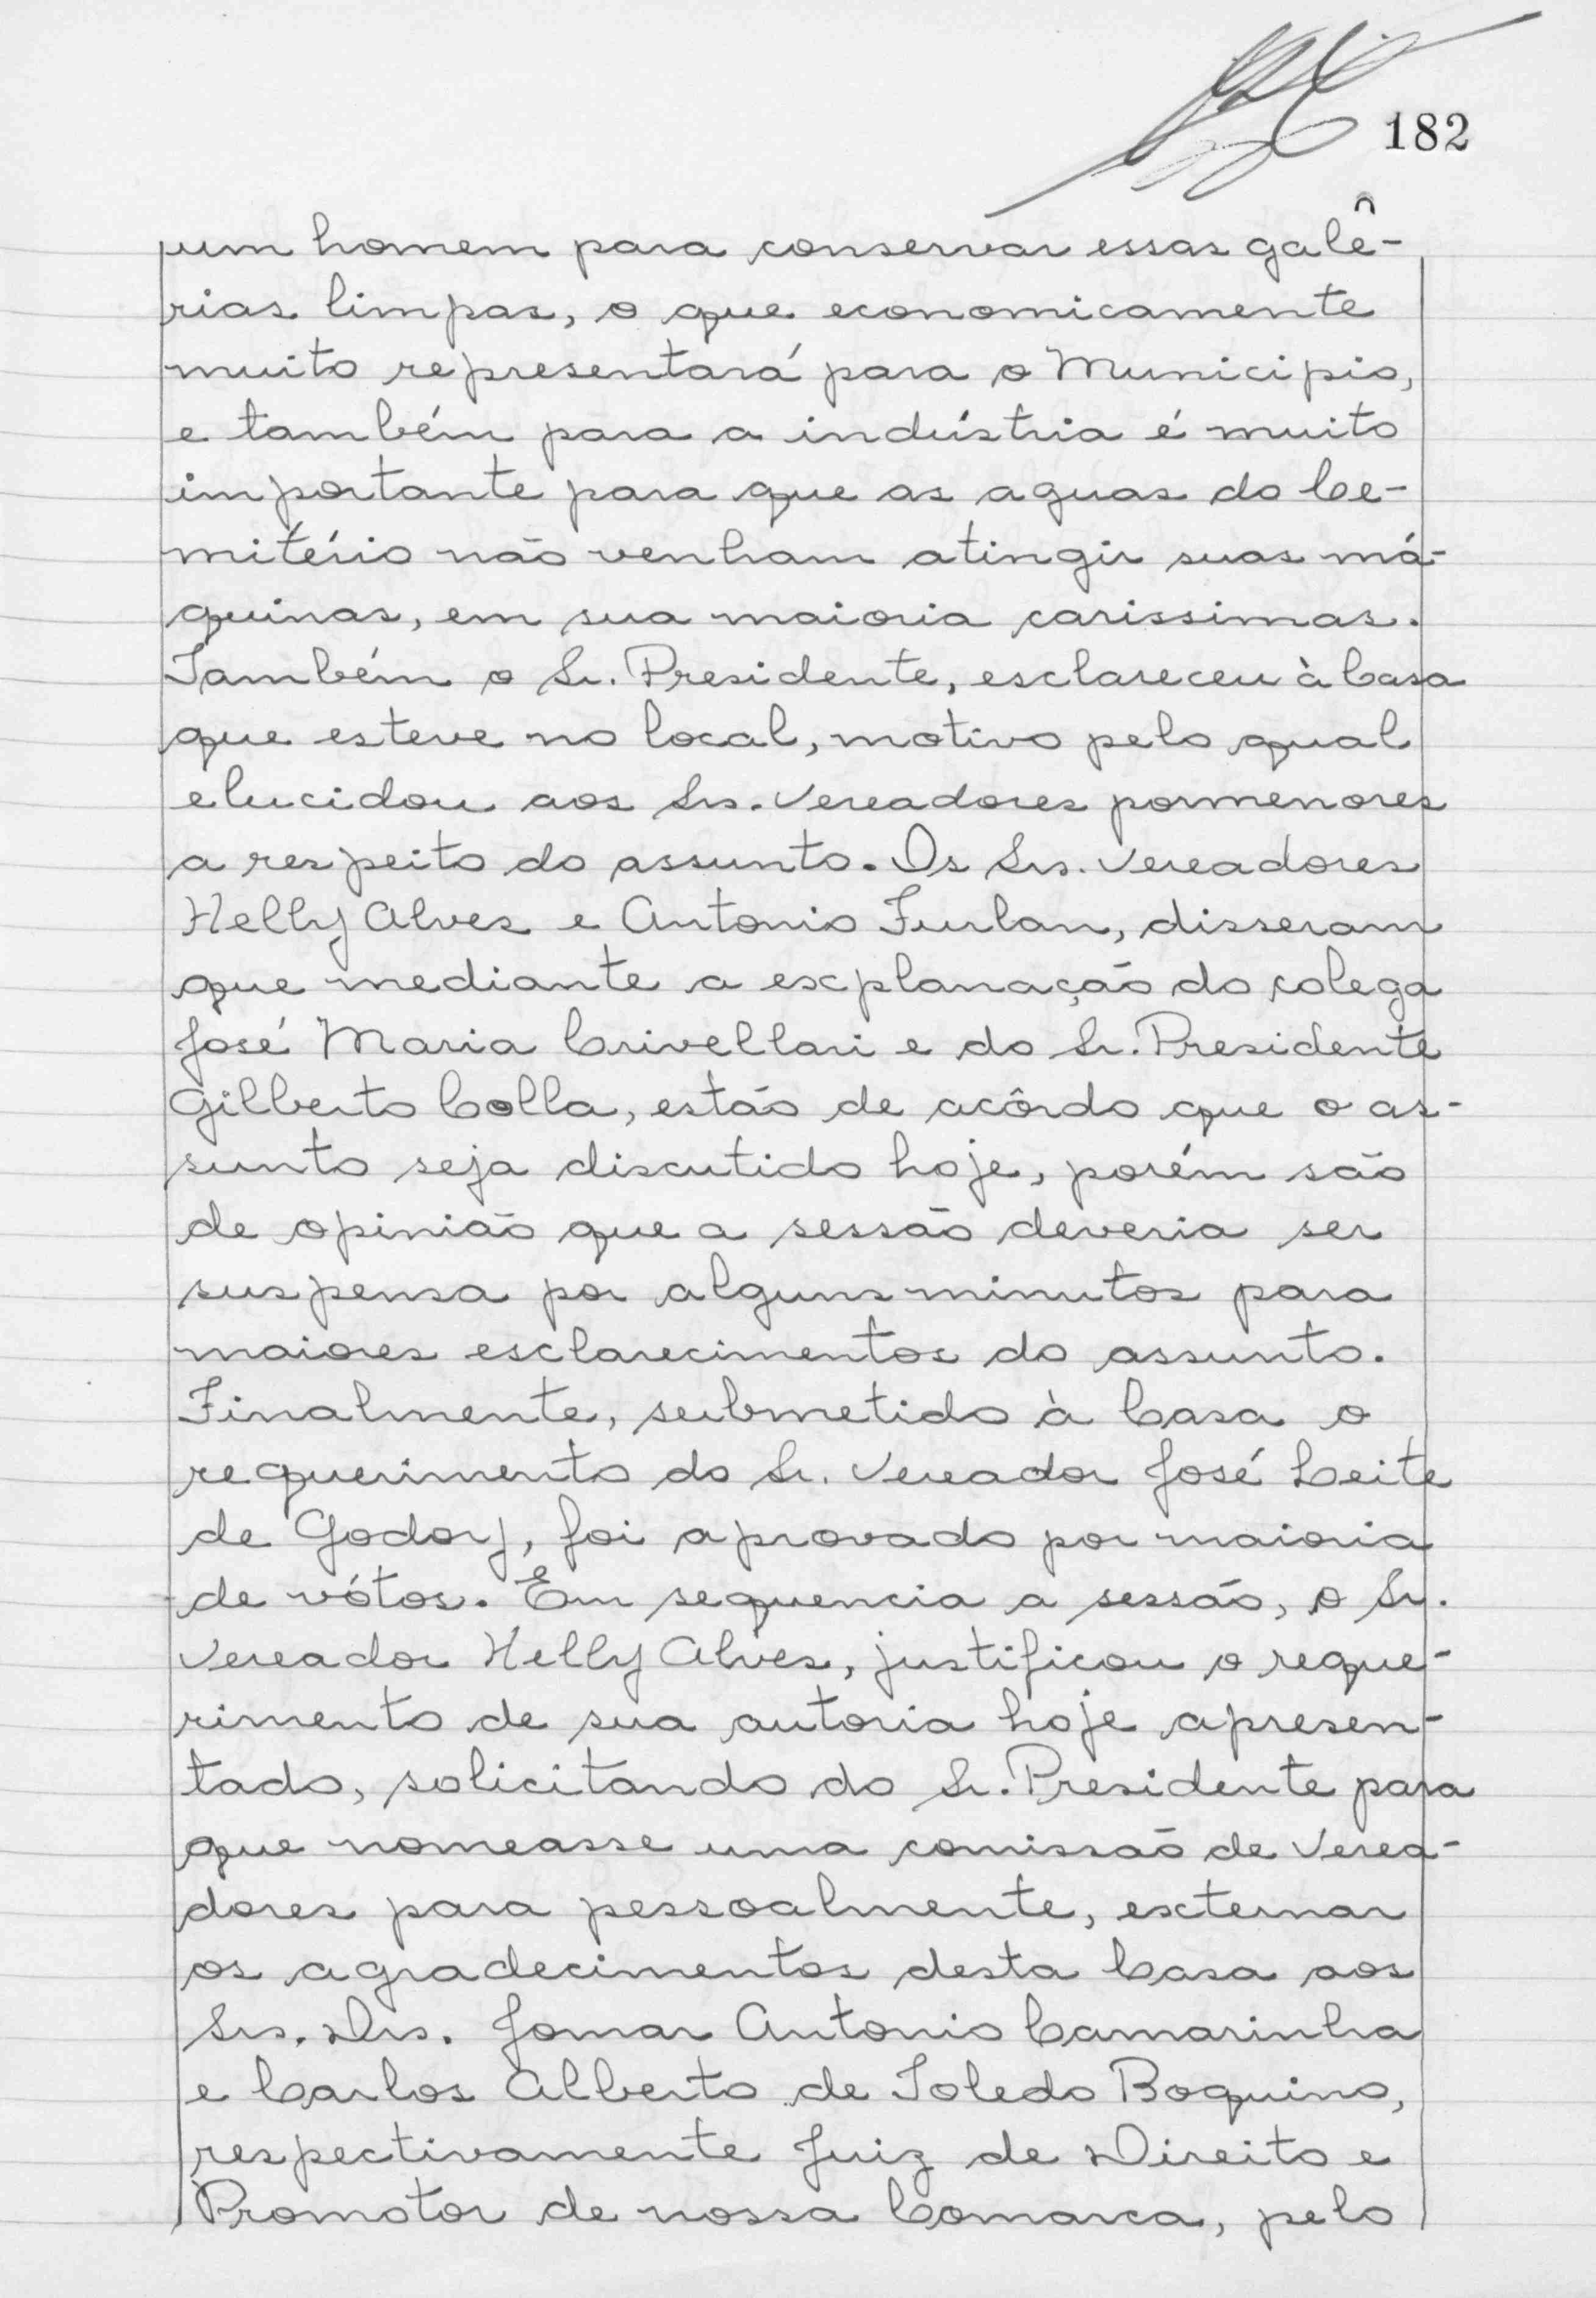 182
um homem para conservar essas galê-
rias limpas, o que economicamente
muito representará para o Municipio,
e também para a indústria é muito
importante para que as aguas do Ce-
mitério não venham atingir suas má-
quinas, em sua maioria carissimas.
Também o Sr. Presidente, esclareceu à Casa
que esteve no local, motivo pelo qual
elucidou aos Srs. Vereadores pormenores
a respeito do assunto. Os Srs. Vereadores
Helly Alves e Antonio Furlan, disseram
que mediante a explanação do colega
José Maria Crivellari e do Sr. Presidente
Gilberto Colla, estão de acôrdo que o as-
sunto seja discutido hoje, porém são
de opinião que a sessão deveria ser
suspensa por alguns minutos para
maiores esclarecimentos do assunto.
Finalmente, submetido à Casa o
requerimento do Sr. Vereador José Leite
de Godoy, foi aprovado por maioria
de vótos. Em sequencia a sessão, o Sr.
Vereador Helly Alves, justificou o reque-
rimento de sua autoria hoje apresen-
tado, solicitando do Sr. Presidente para
que nomeasse uma comissão de Verea-
dores para pessoalmente, externar
os agradecimentos desta Casa aos
Srs. Drs. Jomar Antonio Camarinha
e Carlos Alberto de Toledo Boquino,
respectivamente Juiz de Direito e
Promotor de nossa Comarca, pelo